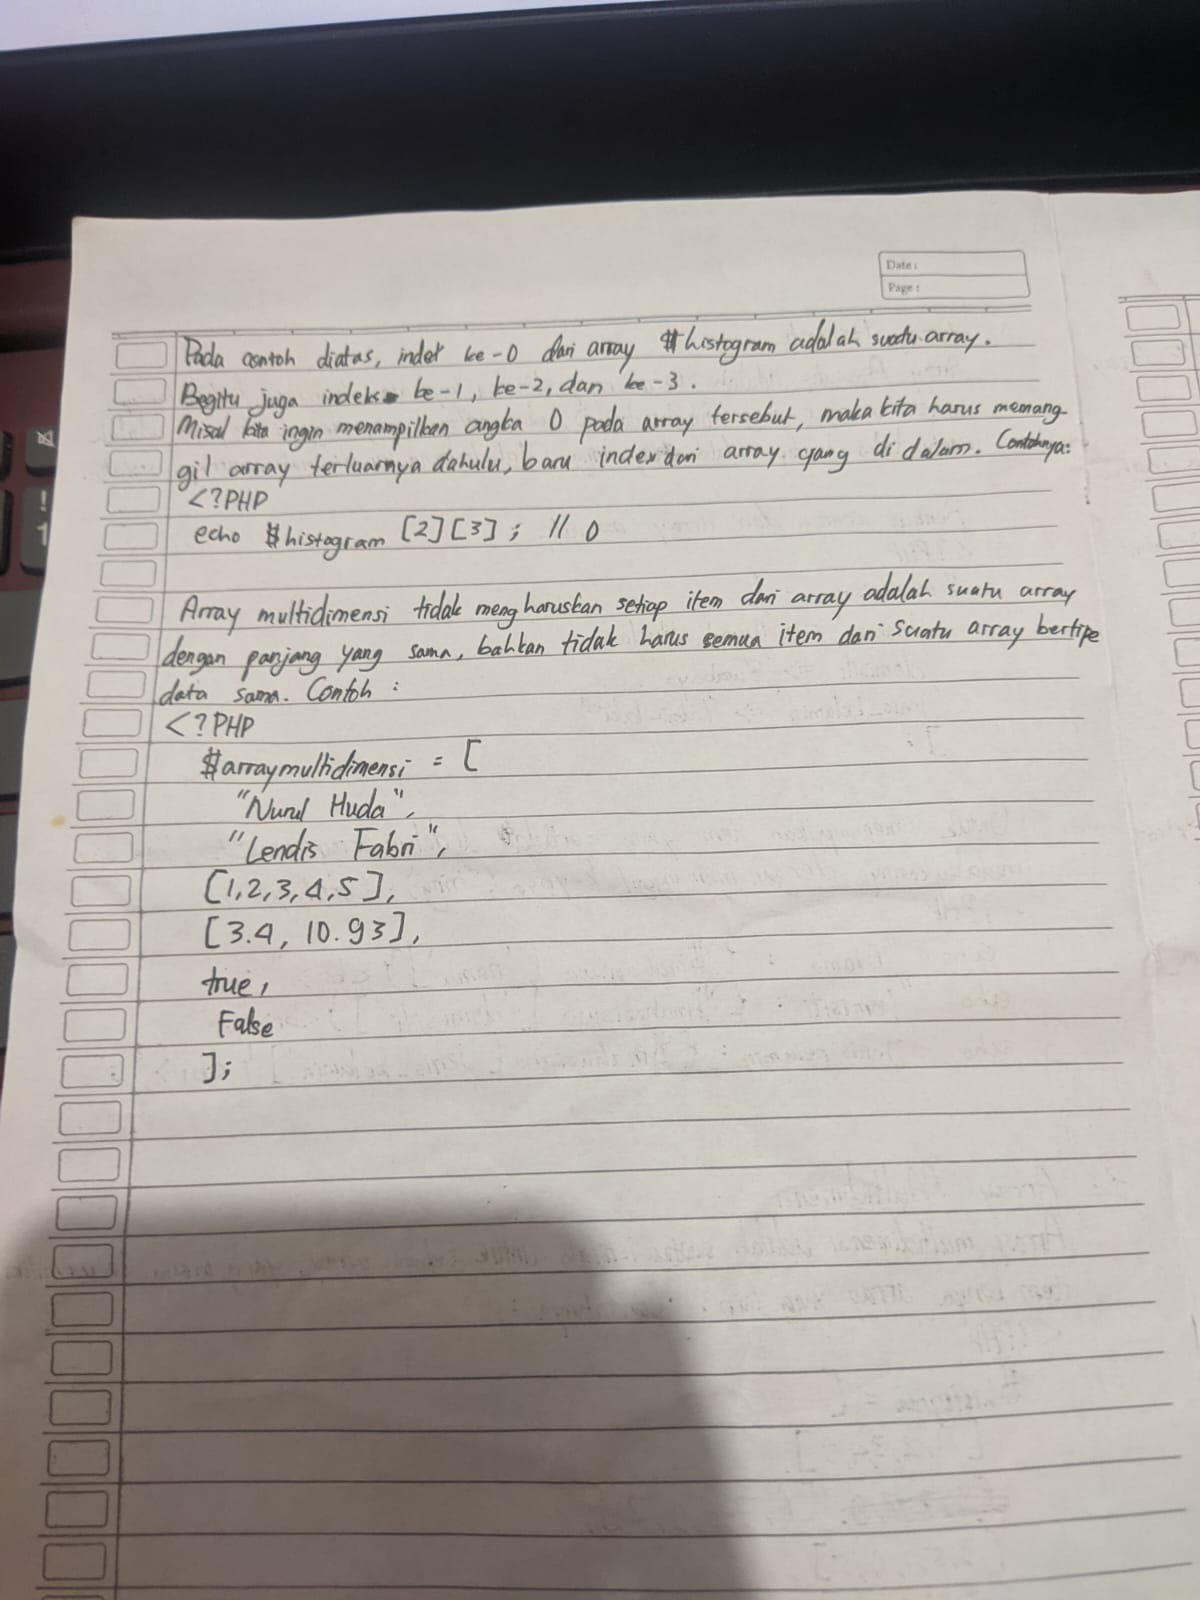 Date:
Page:
Pada contoh diatas, index ke-0 dari array $histogram adalah suatu array.
Begitu juga indeks ke-1, ke-2, dan ke-3.
Misal kita ingin menampilkan angka 0 pada array tersebut, maka kita harus memang-
gil array terluarnya dahulu, baru index dari array yang di dalam. Contohnya:
<?PHP
echo $histogram [2][3]; // 0
Array multidimensi tidak mengharuskan setiap item dari array adalah suatu array
dengan panjang yang sama, bahkan tidak harus semua item dari suatu array bertipe
data sama. Contoh :
<?PHP
$arraymultidimensi = [
"Nurul Huda",
"Lendis Fabri",
[1,2,3,4,5],
[3.4, 10.93],
true,
False
];